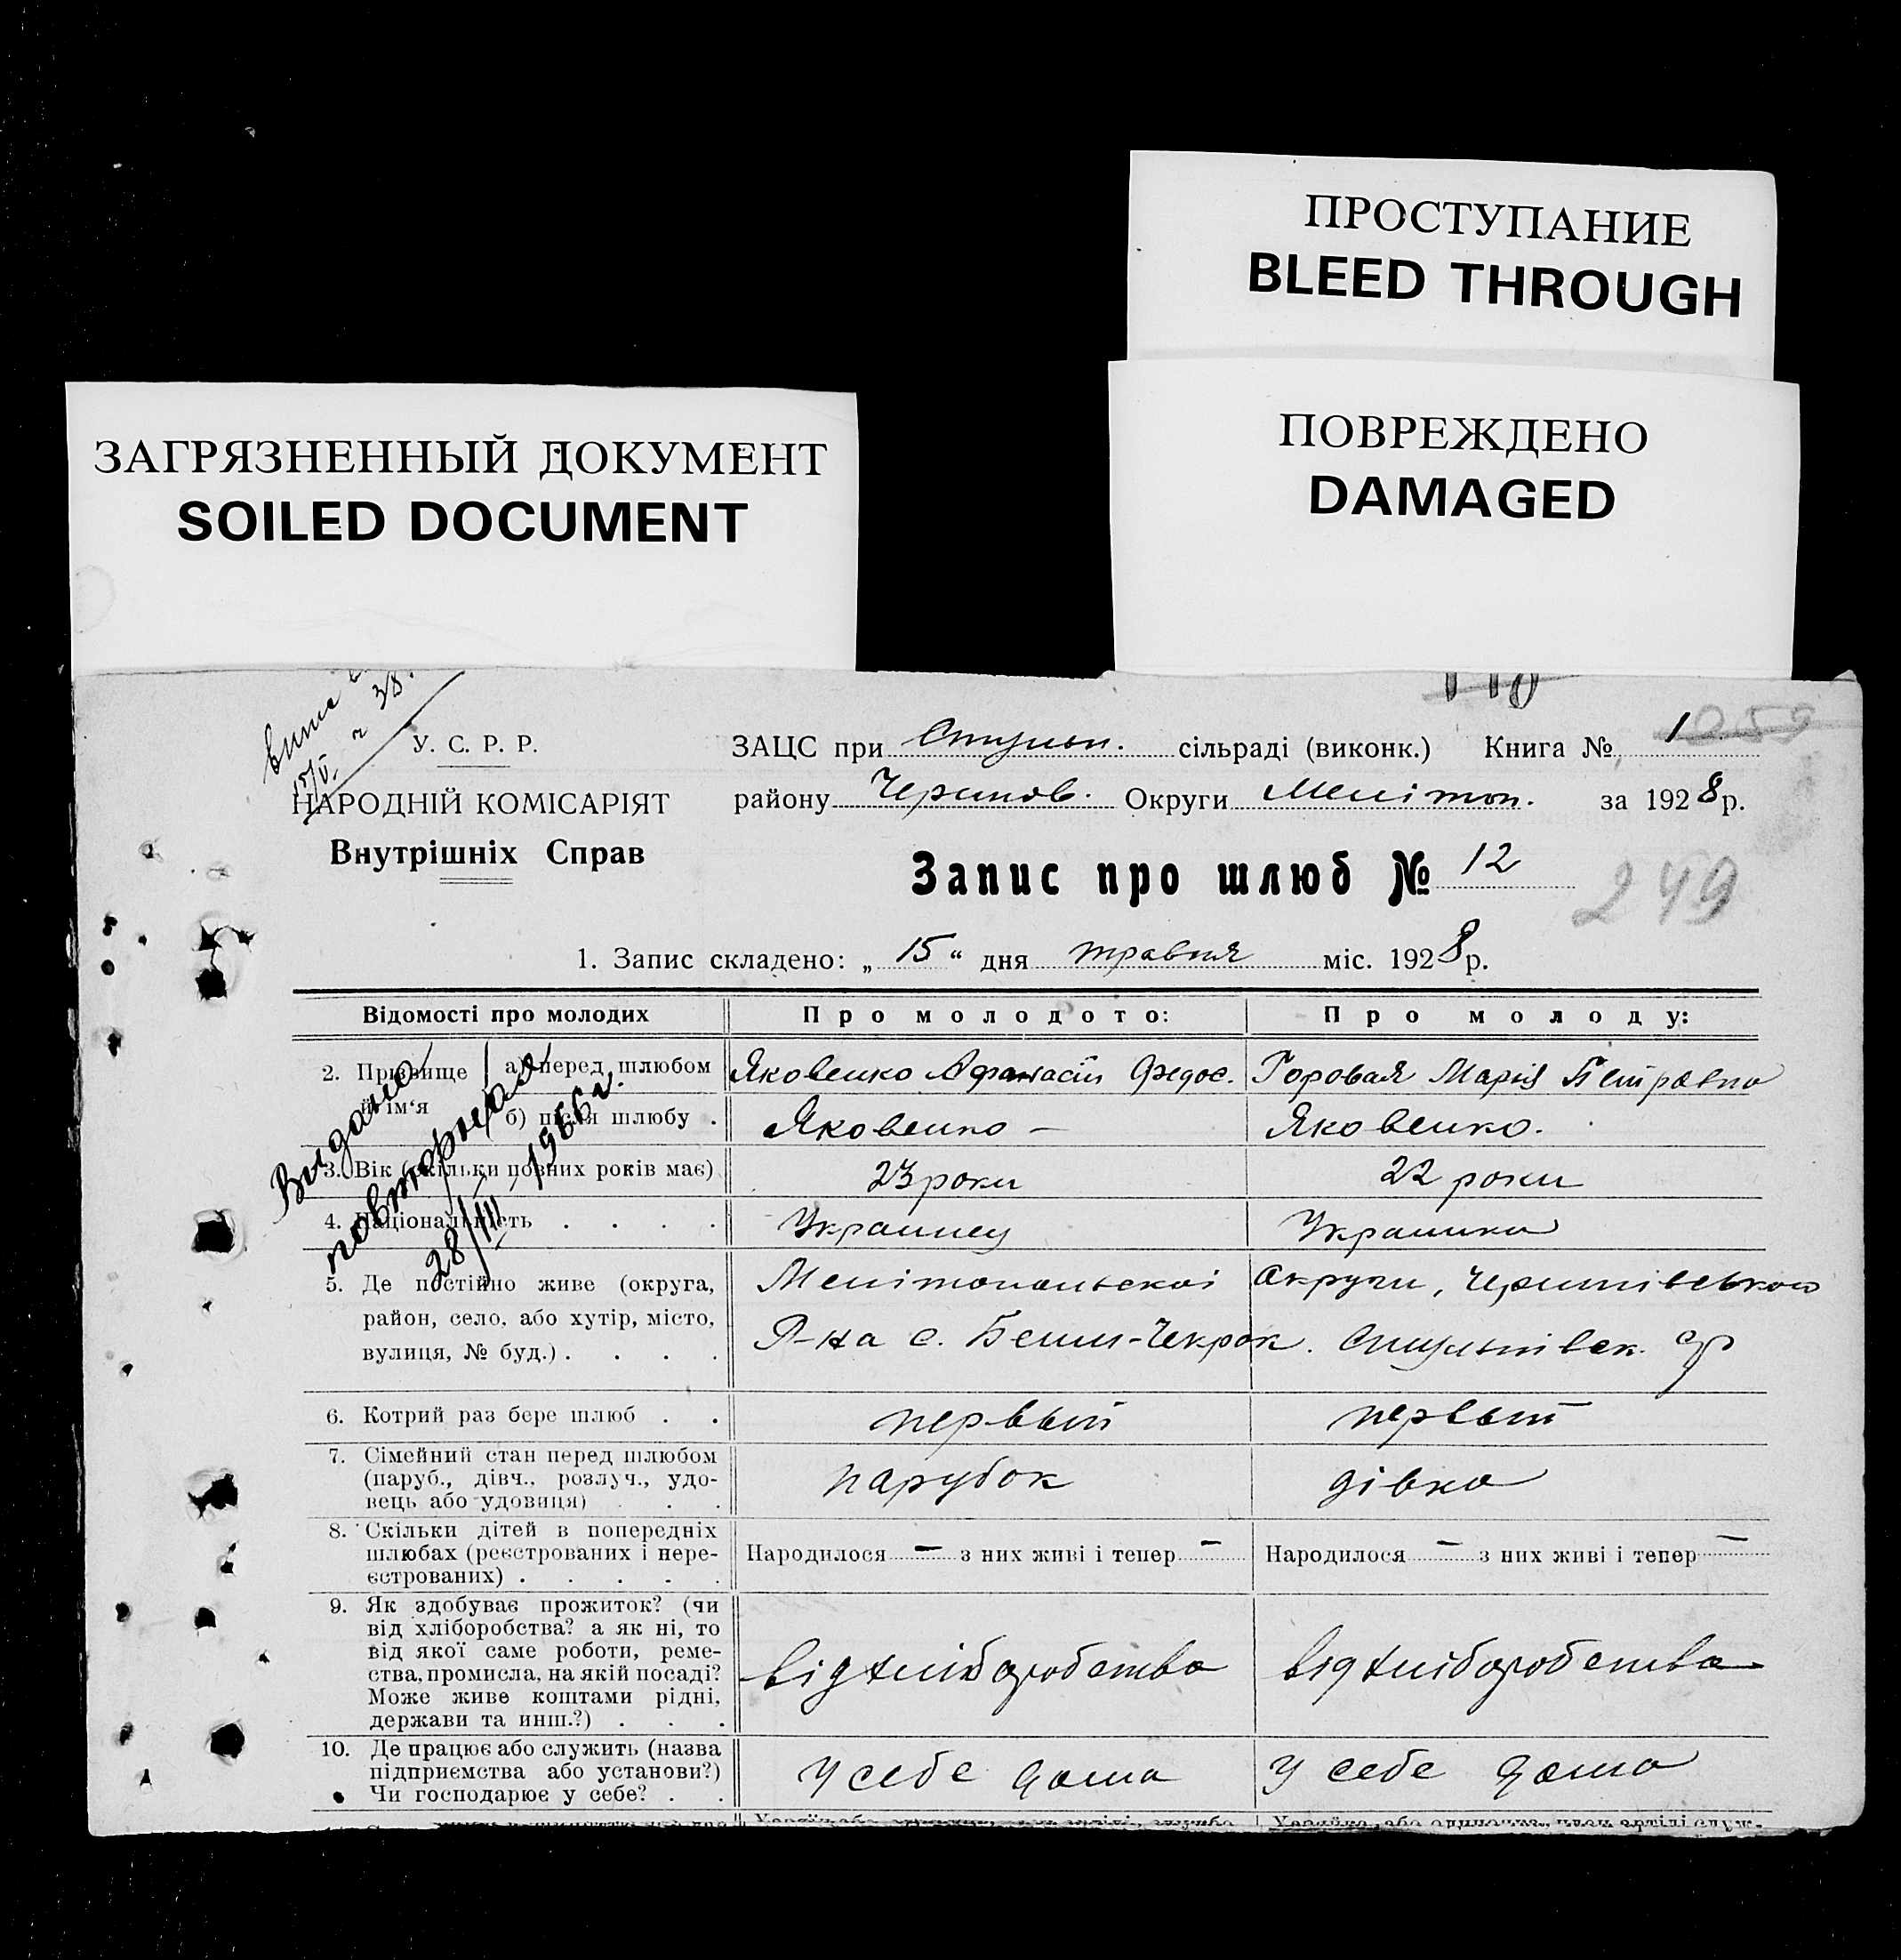 ПРОСТУПАНИЕ
BLEED THROUGH
ПОВРЕЖДЕНО
DAMAGED
ЗАГРЯЗНЕННЫЙ ДОКУМЕНТ
SOILED DOCUMENT
15/V.
38.
У. С. Р. Р.
НАРОДНІЙ КОМІСАРІЯТ
Внутрішніх Справ
ЗАЦС при Стульн. сільраді (виконк.) Книга № 1
району Чернов. Округи Мелітоп. за 1928 р.
Запис про шлюб № 12
249
1. Запис складено: „ 15 “ дня травня міс. 1928 р.
Відомості про молодих Про молодого: Про молоду:
2. Прізвище й ім‘я а) перед шлюбом Яковенко Афанасій Федос. Горовая Марія Петровна
б) після шлюбу . Яковенко – Яковенко.
3. Вік (скільки повних років має) 23 роки 22 роки
4. Національність . . . . Украинец Украинка
5. Де постійно живе (округа, район, село, або хутір, місто, вулиця, № буд.) . . . .
Мелітопольскоі округи, Чернигівськаи
Р-на с. Беш-Чекрок. Стульнівск. ср
6. Котрий раз бере шлюб . . первый первый
7. Сімейний стан перед шлюбом (паруб., дівч., розлуч., удовець або удовиця) . . . парубок дівка
8. Скільки дітей в попередніх шлюбах (реєстрованих і нереєстрованих) . . . . . Народилося – з них живі і тепер – Народилося – з них живі і тепер –
9. Як здобуває прожиток? (чи від хліборобства? а як ні, то від якої саме роботи, ремества, промисла, на якій посаді? Може живе коштами рідні, держави та инш.?) . . . від хліборобства від хліборобства
10. Де працює або служить (назва підприємства або установи?) Чи господарює у себе? . . У себе дома У себе дома
Видано
повторное
28/III – 1966 г.